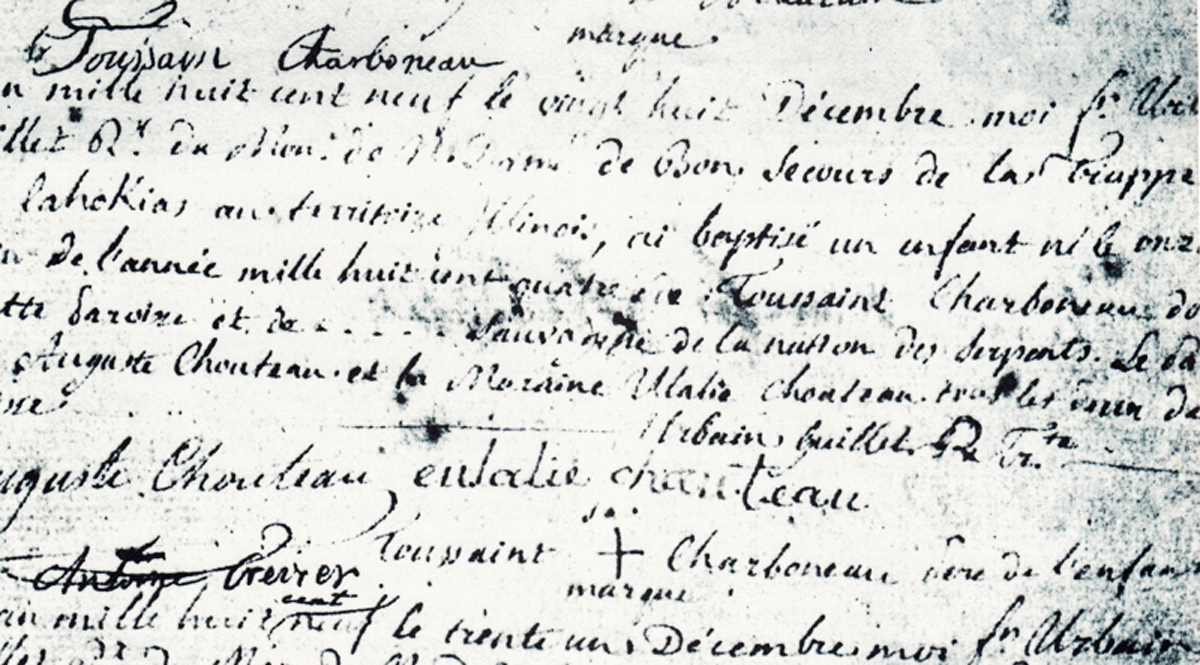 marque
Toussaint Charboneau
mille huit cent neuf le vingt huit Décembre moi fr. Urb
illet de N. Dame de Bon Secours de la Trappe
Cahokias au territoire Illinois, ai baptisé un enfant né le onz
de l'année mille huit cent quatre de Toussaint Charboneau do
tte Paroisse et de . . . . . Sauvagesse de la nation des Serpents. Le pa
Auguste Chouteau et la Maraine Ulalie Chouteau tous les deux de
Urbain Guillet
uguste Chouteau eulalie chouteau
sa
Toussaint + Charboneau père de l'enfant
Antoine
marque
cent
mille huit neuf le trente un Décembre moi fr. Urbain